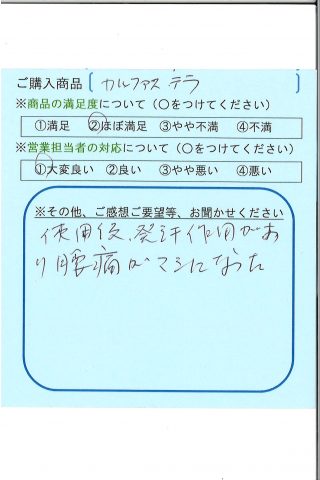 ご購入商品〔 カルファス テラ 〕
※商品の満足度について（○をつけてください）
①満足 ②ほぼ満足 ③やや不満 ④不満
※営業担当者の対応について（○をつけてください）
①大変良い ②良い ③やや悪い ④悪い
※その他、ご感想ご要望等、お聞かせください
使用後、発汗作用があ
り腰痛がマシになった